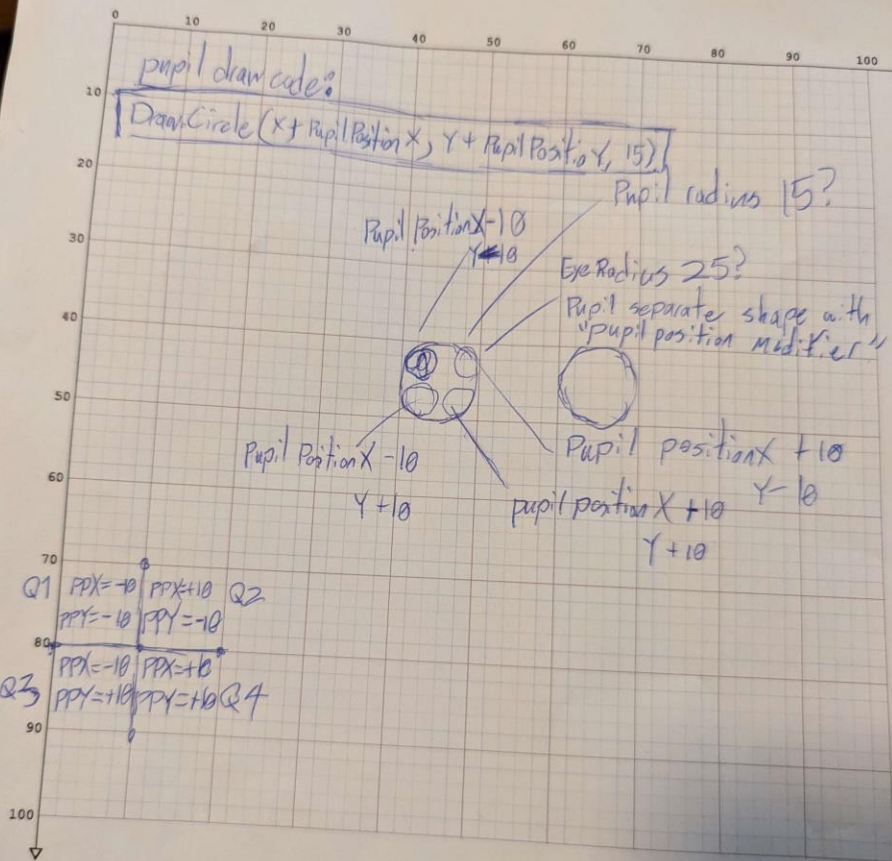 0 10 20 30 40 50 60 70 80 90 100
pupil draw code:
10
Draw.Circle(X+PupilPositionX, Y+PupilPositioY, 15)
20
Pupil radius 15?
Pupil PositionX-10
30
Eye Radius 25?
Pupil separate shape with
40
"pupil position modifier"
50
Pupil positionX +10
Y-10
Pupil PositionX -10
Y+10
60
pupil positionX +10
Y+10
70
Q1 PPX=-10 PPX=+10 Q2
PPY=-10 PPY=-10
80
PPX=-10 PPX=+10
Q3 PPY=+10 PPY=+10 Q4
90
100